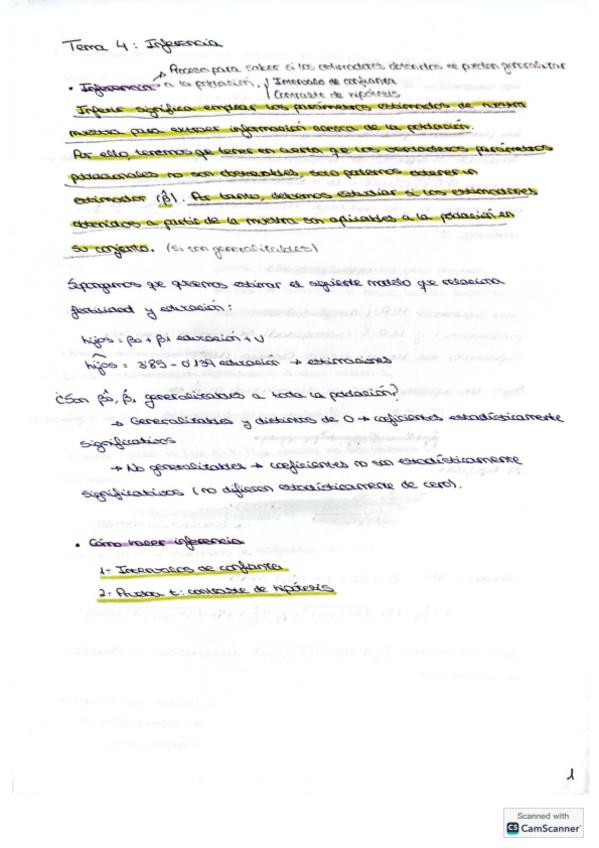 Tema 4: Inferencia
→ Proceso para saber si los estimadores obtenidos se pueden generalizar
• Inferencia a la población. Intervalo de confianza
Contraste de hipótesis
Inferir significa emplear los parámetros estimados de nuestra
muestra para extraer información acerca de la población.
Por ello, tenemos que tener en cuenta que los verdaderos parámetros
poblacionales no son observables, solo podemos obtener un
estimador (β̂). Por tanto, debemos estudiar si los estimadores
obtenidos a partir de la muestra son aplicables a la población en
su conjunto. (si son generalizables)
Supongamos que queremos estimar el siguiente modelo que relaciona
fertilidad y educación:
hijos = β0 + β1 educación + U
hijos = 3'89 - 0'139 educación → estimaciones
¿Son β̂0, β̂1 generalizables a toda la población?
→ Generalizables y distintos de 0 → coeficientes estadísticamente
significativos
→ No generalizables → coeficientes no son estadísticamente
significativos (no difieren estadísticamente de cero).
• Cómo hacer inferencia
1- Intervalos de confianza
2- Prueba t: contraste de hipótesis
1
Scanned with
CS CamScanner